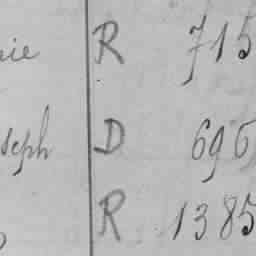 nie R 715
seph D 696
R 1385